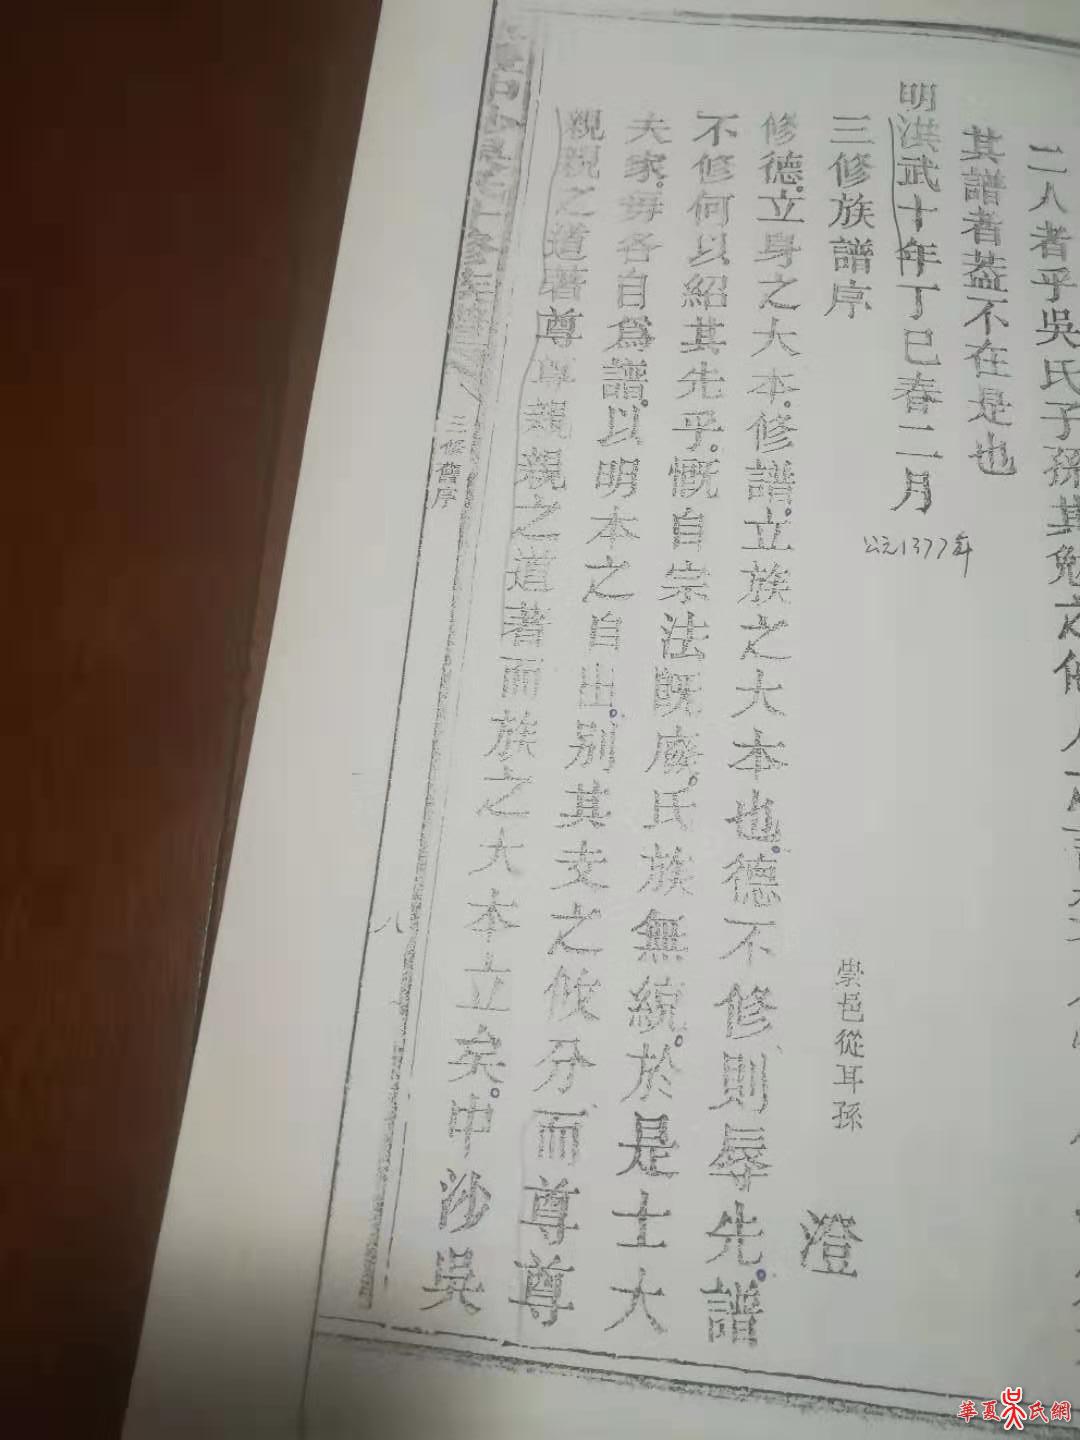 二人者乎吳氏子孫其勉之
其譜者葢不在是也
明洪武十年丁巳春二月
公元1377年
三修族譜序
崇邑從耳孫
澄
修德。立身之大本。修譜。立族之大本也。德不修則辱先。譜
不修何以紹其先乎。慨自宗法既廢。氏族無統。於是士大
夫家。毋各自為譜。以明本之自出。別其支之攸分而尊尊
親親之道著尊尊親親之道著而族之大本立矣。中沙吳
三修舊序
八
華夏吳氏網